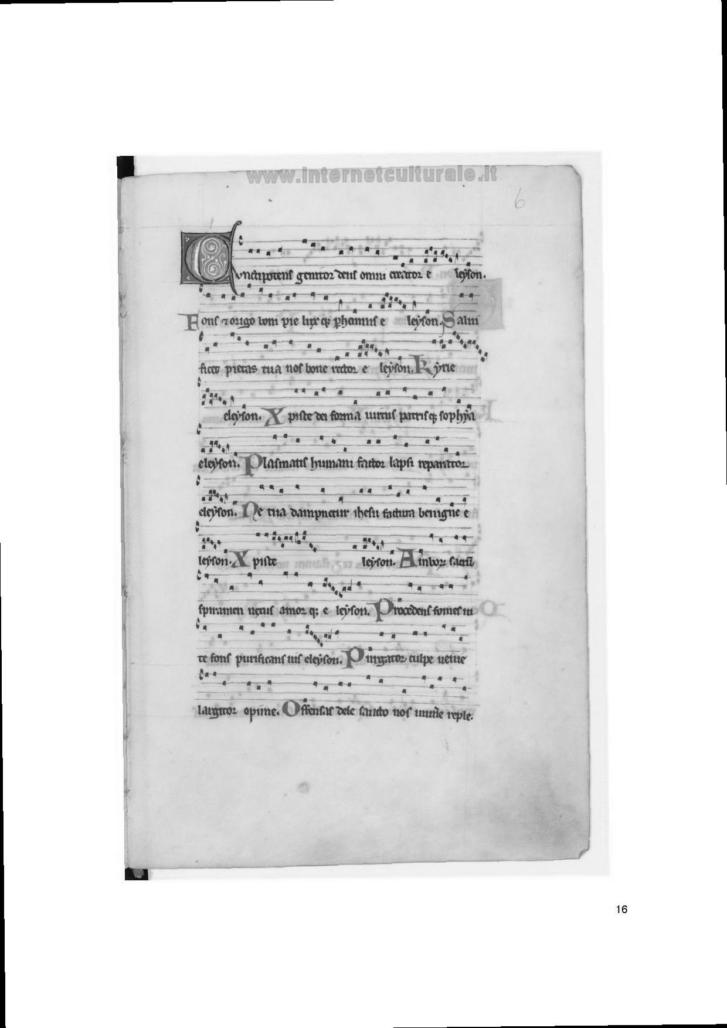 www.internetculturale.it
6
Cunctipotens genitor deus omni creator e leyson.
Fons & origo boni pie lux q; phennis e leyson. Salui
ficet pietas tua nos bone rector e leyson. Kyrie
eleyson. Xpiste dei forma uirtus patrisq; sophya
eleyson. Plasmatis humani factor lapsi reparator
eleyson. Ne tua dampnetur ihesu factura benigne e
leyson. Xpiste leyson. Amborum
spiramen nexus amor q; e leyson. Procedens fomes ui
te fons purificans uis eleyson. Purgator culpe uenie
largitor opime. Offensas dele sancto nos munere reple.
16